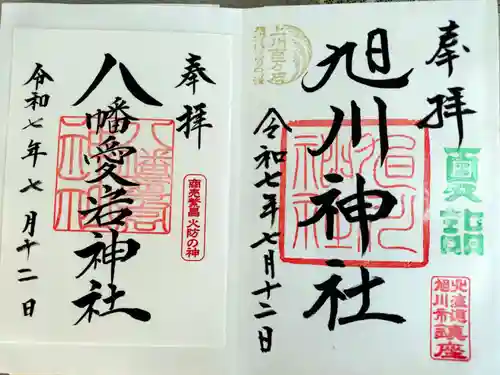 奉拝
旭川神社
令和七年七月十二日
夏詣
北海道
旭川市
鎮座
奉拝
八幡愛宕神社
令和七年七月十二日
商売繁昌
火防の神